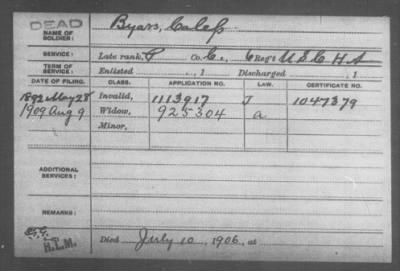 DEAD
NAME OF SOLDIER: Byars, Caleb
SERVICE: Late rank, P Co. C., 6 Reg't U.S.C.H.A
TERM OF SERVICE: Enlisted , 1 Discharged , 1
DATE OF FILING. CLASS. APPLICATION NO. LAW. CERTIFICATE NO.
1892 May 28 Invalid, 1113917 J 1047379
1909 Aug 9 Widow, 925304 a
Minor,
ADDITIONAL SERVICES:
REMARKS:
H.L.M. Died July 10, 1906, at